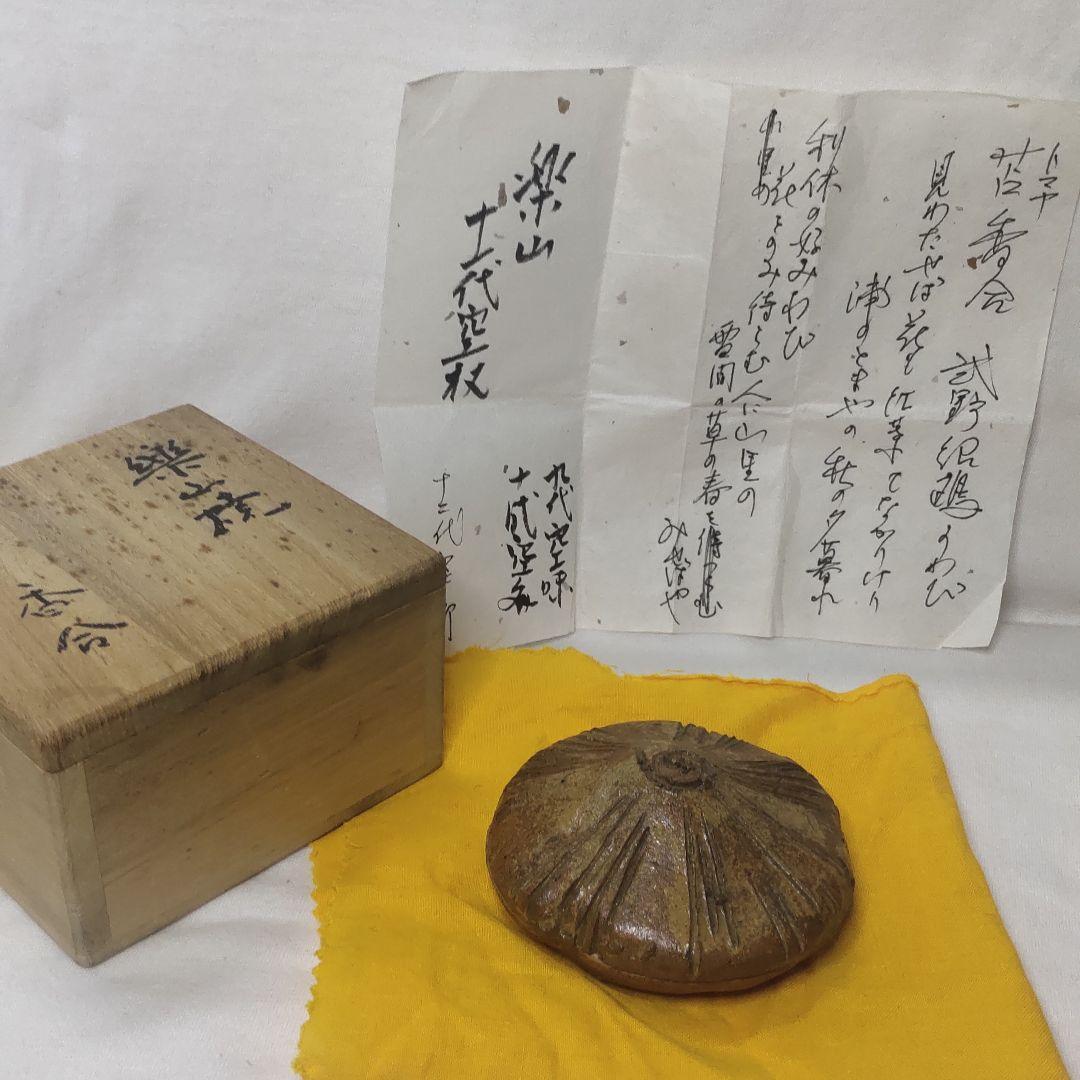 トマヤ
苫香合
武野紹鴎のわび
見わたせば花も紅葉もなかりけり
浦のとまやの秋の夕暮れ
利休の好みわび
花をのみ待らむ人に山里の
雪間の草の春を
みせばや
楽山
十一代空权
九代空味
十代空
十二代空
楽山
香合